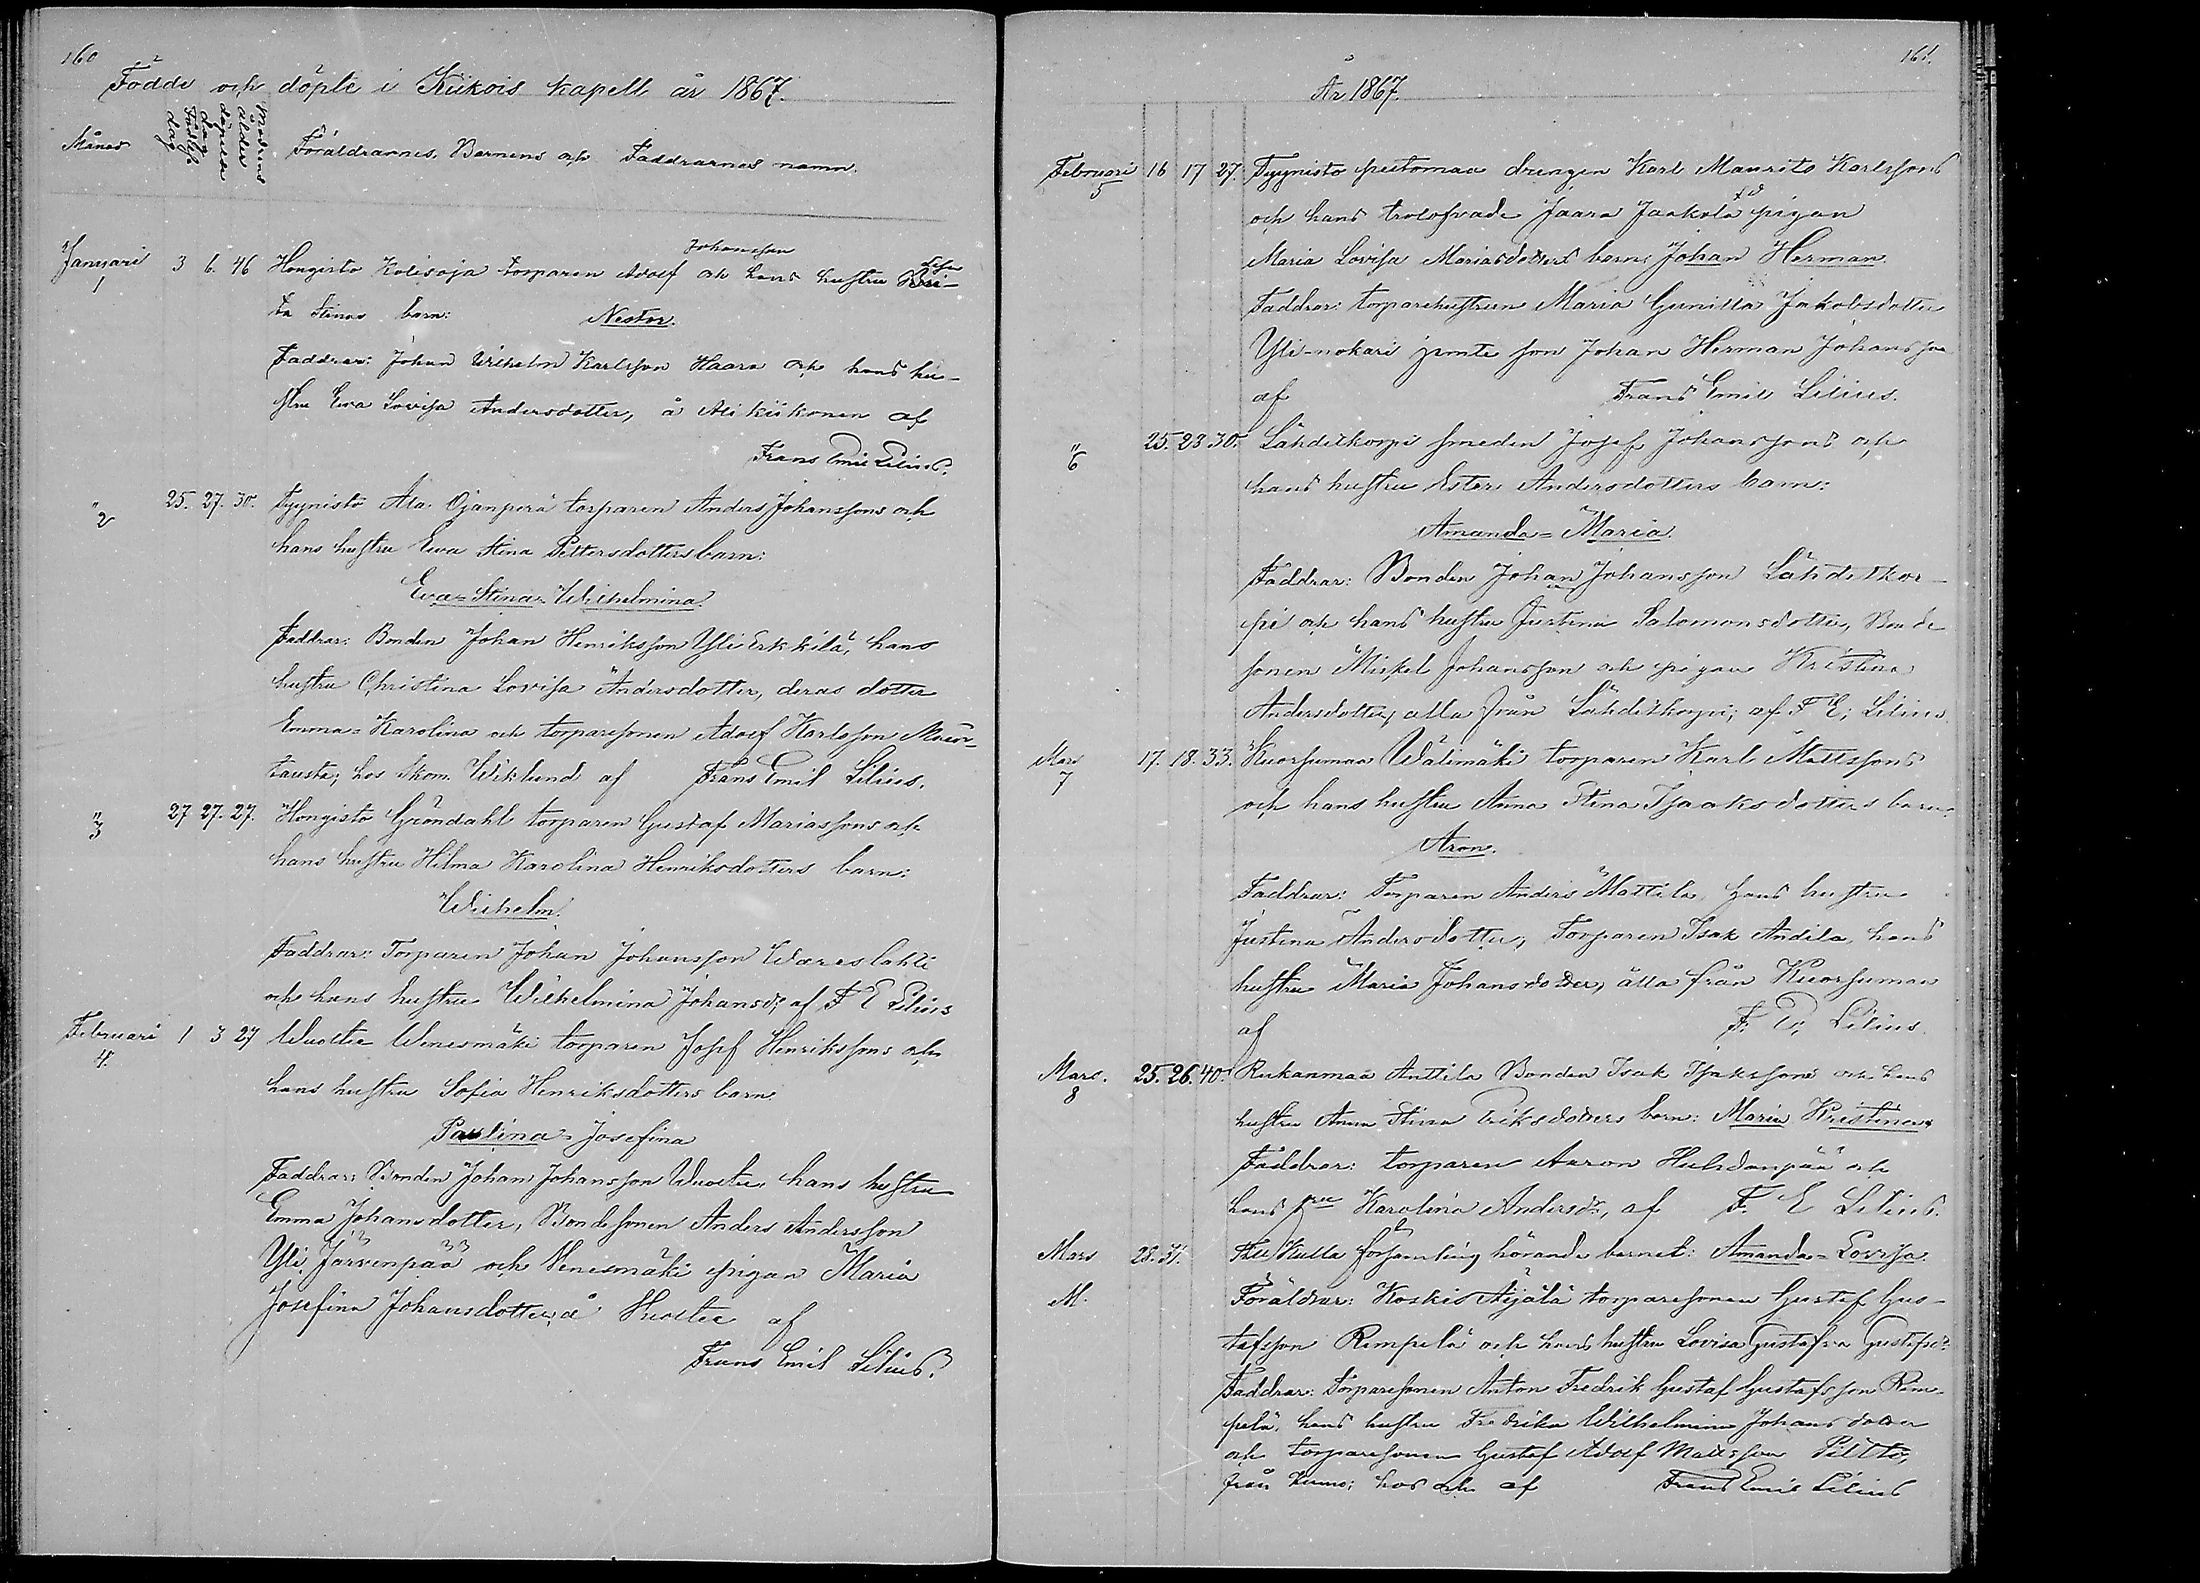 160
Födde och döpte i Kiikois kapell år 1867.
Månad
Födelse dag
döpelse dag
Modrens ålder
Föräldrarnes, Barnens och Faddrarnes namn.
Januari 1 3 6. 46 Hongisto Kolisoja torparen Adolf Johansson och hans hustru
ta Stinas barn: Nestor.
Faddrar: Johan Wilhelm Karlsson Haara och hans hu-
stru Eva Lovisa Andersdotter, å Ali kiikonen af
Frans Emil Lilius.
" 2 25. 27. 30. Tyynistö Ala Ojanperä torparen Anders Johanssons och
hans hustru Eva Stina Pettersdotters barn:
Eva-Stina-Wilhelmina.
Faddrar: Bonden Johan Henriksson Yli Erkkilä, hans
hustru Christina Lovisa Andersdotter, deras dotter
Emma-Karolina och torparesonen Adolf Karlsson
tausta; hos Wiklund af Frans Emil Lilius.
" 3 27 27. 27. Hongisto Gröndahl torparen Gustaf Mariassons och
hans hustru Hilma Karolina Henriksdotters barn:
Wilhelm.
Faddrar: Torparen Johan Johansson Wareslahti
och hans hustru Wilhelmina Johansdr af F E Lilius
Februari 4. 1 3 27 Wuoltee Wenesmäki torparen Josef Henrikssons och
hans hustru Sofia Henriksdotters barn
Paulina-Josefina
Faddrar: Bonden Johan Johansson Wuoltee, hans hustru
Emma Johansdotter, Bondesonen Anders Andersson
Yli Järvenpää och Venesmäki pigan Maria
Josefina Johansdotter, å Wuoltee af
Frans Emil Lilius.
161.
År 1867.
Februari 5 16 17 27. Tyynistö drengen Karl Maurits Karlssons
och hans trolofvade Jaara Jaakola pigan
Maria Lovisa Mariasdotters barn: Johan Herman.
Faddrar: torparehustrun Maria Gunilla Jakobsdotter
Yli-nokari jemte son Johan Herman Johansson
af Frans Emil Lilius.
" 6 25. 28 30. Lähdekorpi smeden Josef Johanssons och
hans hustru Ester Andersdotters barn:
Amanda-Maria.
Faddrar: Bonden Johan Johansson Lähdekor-
pi och hans hustru Justina Salomonsdotter, Bonde
sonen Mickel Johansson och pigan Kristina
Andersdotter, alla från Lähdekorpi; af F. E. Lilius.
Mars 7 17. 18. 33. Kuorsumaa Wälimäki torparen Karl Mattssons
och hans hustru Anna Stina Isaaksdotters barn
Aron.
Faddrar: Torparen Anders Mattila, hans hustru
Justina Andersdotter, Torparen Isak Andila, hans
hustru Maria Johansdotter, alla från Kuorsumaa
af F. E. Lilius.
Mars. 8 25. 26. 40. Anttila Bonden Isak Isakssons och hans
hustru Anna Stina Eriksdotters barn: Maria Kristina
Faddrar: torparen Aaron Huhdanpää och
hans Karolina Andersdr, af F. E Lilius.
Mars 28. 31. församling hörande barnet: Amanda-Lovisa.
M. Föräldrar: Koskis Äijälä torparesonen Gustaf Gus-
tafsson Rimpelä och hans hustru Lovisa Gustafva Gustafsdr
Faddrar: Torparesonen Anton Fredrik Gustaf Gustafsson Rim-
pelä, hans hustru Fredrika Wilhelmina Johansdotter
och torparesonen Gustaf Adolf Mattsson
från; hos och af Frans Emil Lilius